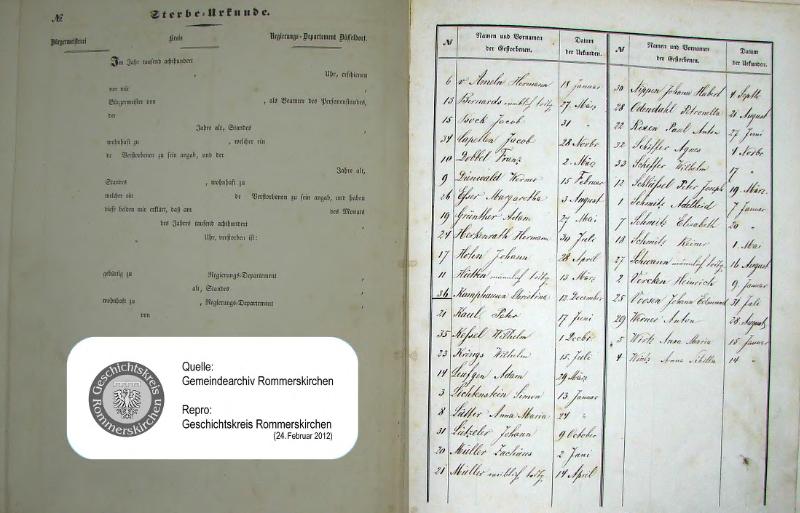 №
Sterbe-Urkunde.
Bürgermeisterei Kreis Regierungs-Departement Düsseldorf.
Im Jahr tausend achthundert
, Uhr, erschienen
vor mir
Bürgermeister von , als Beamten des Personenstandes,
der ,
Jahre alt, Standes
wohnhaft zu , welcher ein
de Verstorbenen zu sein angab, und der
Jahre alt,
Standes , wohnhaft zu ,
welcher ein de Verstorbenen zu sein angab, und haben
diese beiden mir erklärt, daß am des Monats
des Jahres tausend achthundert
Uhr, verstorben ist:
gebürtig zu Regierungs-Departement
alt, Standes
wohnhaft zu , Regierungs-Departement
von
Geschichtskreis
Rommerskirchen
Quelle:
Gemeindearchiv Rommerskirchen
Repro:
Geschichtskreis Rommerskirchen
(24. Februar 2012)
№ Namen und Vornamen der Gestorbenen. Datum der Urkunden.
6 v Ameln Hermann 18 Januar
13 Bernards männlich todtg. 27 März
15 Bock Jacob 31 "
34 Capellen Jacob 28 Novbr
10 Döbbel Franz 2 März
9 Dünwald Werner 15 Februar
26 Esser Margaretha 3 August
19 Grünther Adam 27 Mai
24 Herkenrath Hermann 30 Juli
17 Holen Johann 28 April
11 Hütten männlich todtg. 13 März
36 Kamphausen Christina 12 December
21 Kaul Peter 17 Juni
35 Kessel Wilhelm 1 Decbr
23 Krings Wilhelm 15 Juli
14 Leufgen Adam 29 März
3 Lichtenstein Simon 13 Januar
8 Lütter Anna Maria 24 "
31 Lützeler Johann 9 October
20 Müller Zachäus 2 Juni
21 Müller weiblich todtg. 14 April
№ Namen und Vornamen der Gestorbenen. Datum der Urkunden.
30 Nippen Johann Hubert 4 Septb
28 Odendahl Petronella 21 August
22 Rixen Paul Anton 27 Juni
32 Schiffer Agnes 4 Novbr
33 Scheffer Wilhelm 17 "
12 Schlüssel Peter Joseph 19 März
1 Schmitz Adelheid 7 Januar
7 Schmitz Elisabeth 20 "
18 Schmitz Reiner 1 Mai
27 Schwann männlich todtg. 16 August
2 Voecken Heinrich 9 Januar
25 Voosen Johann Ferdinand 31 Juli
29 Werner Anton 28 August
5 Wirtz Anna Maria 15 Januar
4 Wirtz Anna 14 "